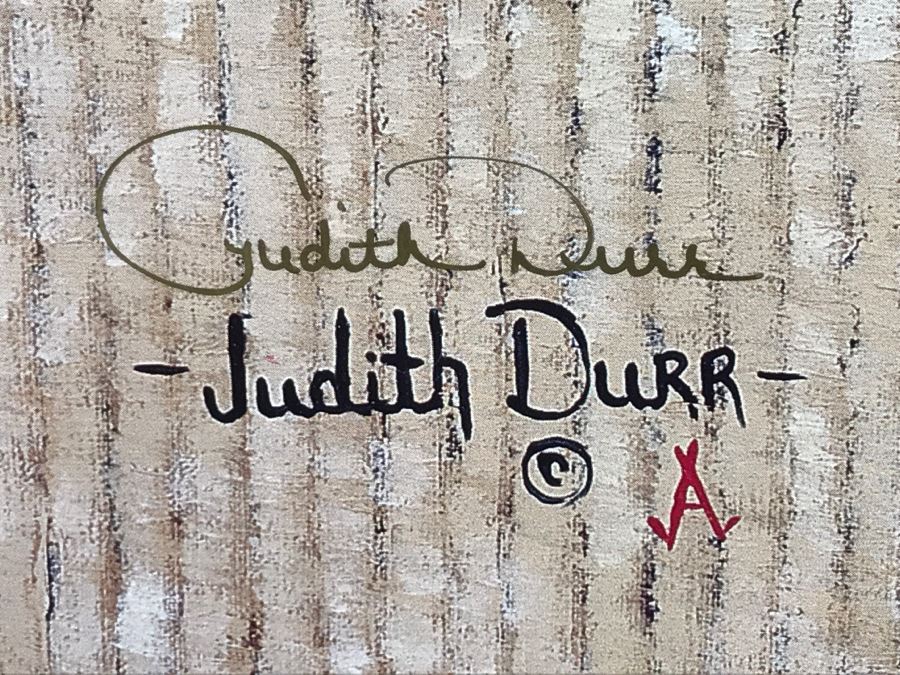 Judith Durr
- Judith DURR -
©
A